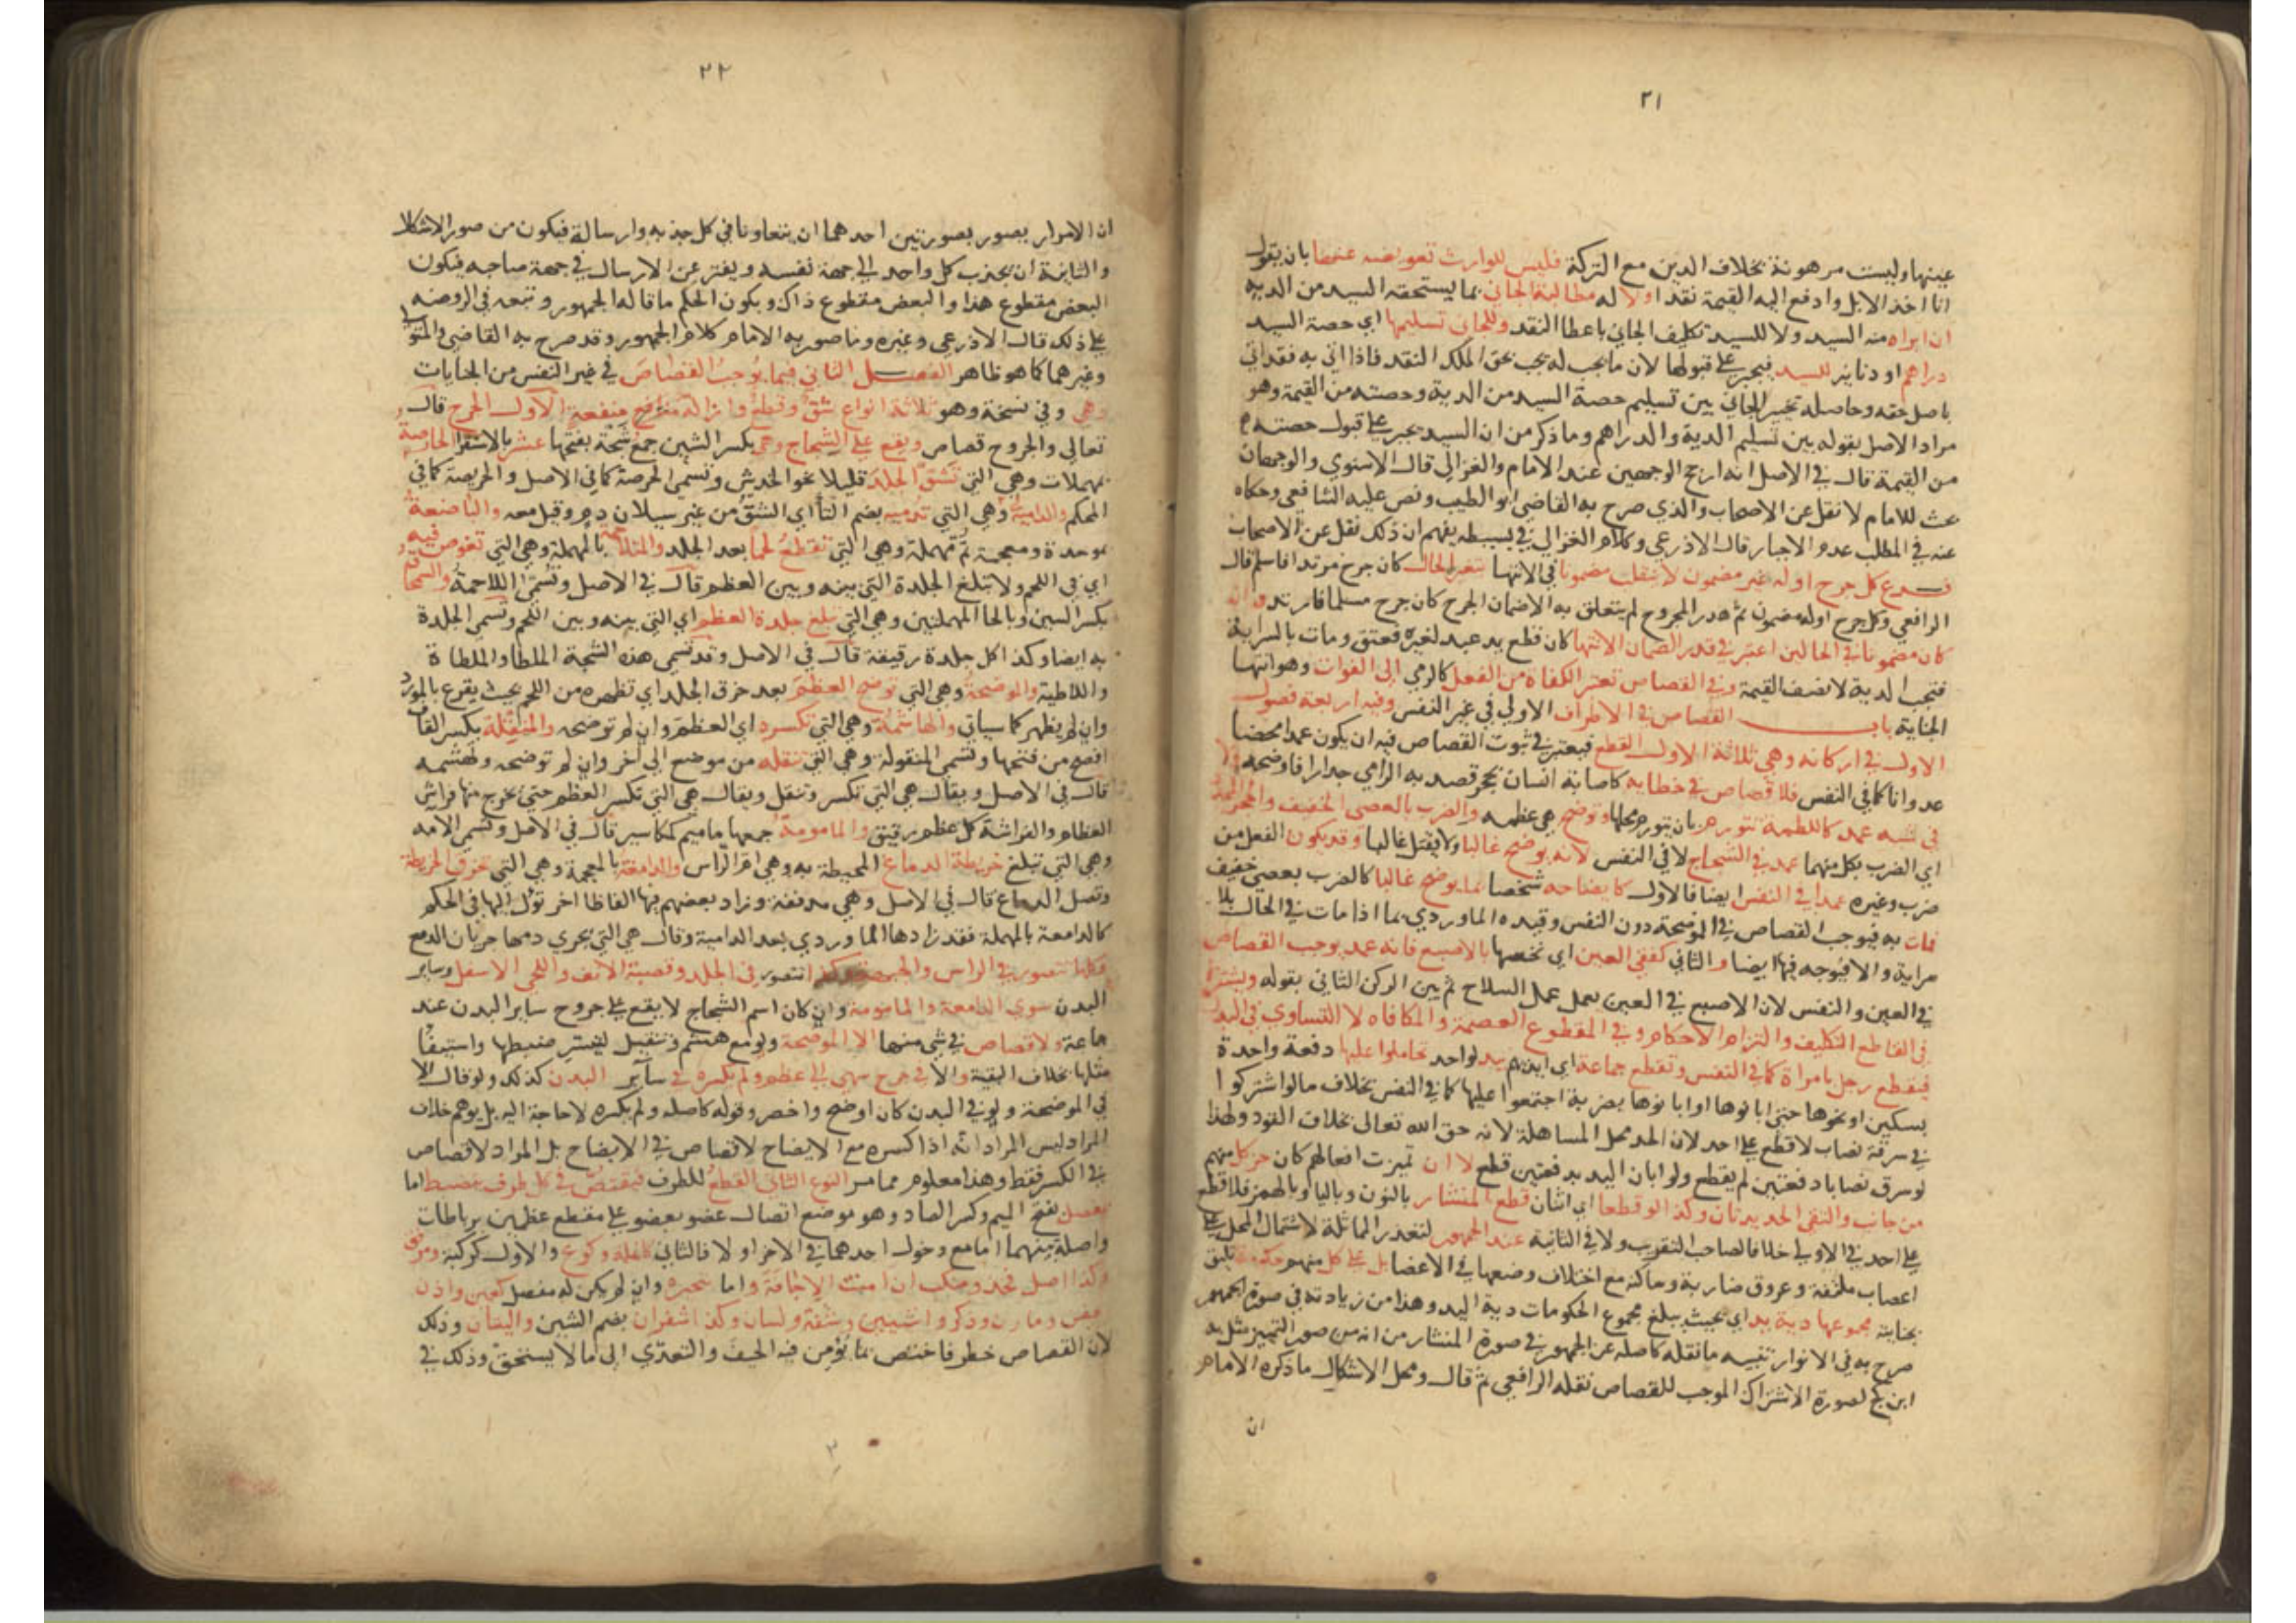 ٢١
عينها وليست مرهونة بخلاف الدين مع التركة فليس للوارث تعويضه عنها بان يقول
انا اخذ الابل وادفع اليه القيمة نقدا ولا له مطالبة الجاني بما يستحقه السيد من الدية
ان ابراه منه السيد ولا للسيد تكليف الجاني باعطا النقد وللجاني تسليمها اي حصة السيد
دراهم او دنانير للسيد فيجبر على قبولها لان ما يجب له يجب بحق الملك النقد فاذا اتي به فقد اتي
باصل حقه وحاصله تخيير الجاني بين تسليم حصة السيد من الدية وحصته من القيمة وهو
مراد الاصل بقوله بين تسليم الدية والدراهم وما ذكر من ان السيد يجبر على قبول حصته
من القيمة قال في الاصل انه ارجح الوجهين عند الامام والغزالي قال الاسنوي والوجهان
بحث للامام لا نقل عن الاصحاب والذي صرح به القاضي ابو الطيب ونص عليه الشافعي وحكاه
عنه في المطلب عدم الاجبار قال الاذرعي وكلام الغزالي في بسيطه يفهم ان ذلك نقل عن الاصحاب
فرع كل جرح اوله غير مضمون لا ينقلب مضمونا في الانتها بتغير الحال كان جرح مرتدا فاسلم قال
الرافعي وكل جرح اوله مضمون ثم هدر المجروح لم يتعلق به الاضمان الجرح كان جرح مسلما فارتد وان
كان مضمونا في الحالين اعتبر في قدر الضمان الانتها كان قطع يد عبد لغيره فعتق ومات بالسراية
فتجب الدية لا نصف القيمة وفي القصاص تعتبر الكفاة من الفعل كالرمي الى الفوات وهو انتها
الجناية باب القصاص في الاطراف الاولي في غير النفس وفيه اربعة فصول
الاول في اركانه وهي ثلاثة الاول القطع فيعتبر في ثبوت القصاص فيه ان يكون عمدا محضا
عدوانا كما في النفس فلا قصاص في خطا به كاصابة انسان بحجر قصد به الرامي جدارا فاوضحه ولا
في شبه عمد كاللطمة تتورم بان يتورم محلها وتوضح هي عظمه والضرب بالعصى الخفيف والحجر
اي الضرب بكل منهما عمد في الشجاج لا في النفس لانه يوضح غالبا ولا يقتل غالبا وقد يكون الفعل من
ضرب وغيره عمدا في النفس ايضا فالاول كايضاحه شخصا بما يوضح غالبا كالضرب بعصى خفيف
فمات به فيوجب القصاص في الموضحة دون النفس وقيده الماوردي بما اذا مات في الحال بلا
سراية والا فيوجه فيها ايضا والثاني كفقى العين اي نخسها بالاصبع فانه عمد يوجب القصاص
في العين والنفس لان الاصبع في العين يعمل عمل السلاح ثم بين الركن الثاني بقوله ويشترط
في القاطع التكليف والتزام الاحكام وفي المقطوع العصمة والمكافاه لا التساوي في البدل
فيقطع رجل بامراة كما في النفس وتقطع جماعة اي ايديهم بيد لواحد تحاملوا عليها دفعة واحدة
بسكين او نحوها حتى ابانوها او ابانوها بضربة اجتمعوا عليها كما في النفس بخلاف ما لو اشتركوا
في سرقة نصاب لا قطع على احد لان الحد محل المساهلة لانه حق الله تعالى بخلاف القود ولهذا
لو سرق نصابا دفعتين لم يقطع ولو ابان اليد بدفعتين قطع لا ان تميزت افعالهم كان حز كل منهم
من جانب والتقى الحديدتان وكذا لو قطعا اي اثنان قطع المنشار بالنون وباليا وبالهمز فلا قطع
على احد في الاولى خلافا لصاحب التقريب ولا في الثانية عند الجمهور لتعذر المماثلة لاشتمال المحل على
اعصاب ملتفة وعروق ضاربة وساكنة مع اختلاف وضعها في الاعضا بل على كل منهم حكومة تليق
بجنايته مجموعها دية يد اي بحيث يبلغ مجموع الحكومات دية اليد وهذا من زيادته في صورة الجمهور
صرح به في الانوار تنبيه ما نقله كاصله عن الجمهور في صورة المنشار من انه من صور التمييز مثل به
ابن كج لصورة الاشتراك الموجب للقصاص نقله الرافعي ثم قال ومحل الاشكال ما ذكره الامام
ان
٢٢
ان الامرار يصور بصورتين احدهما ان يتعاونا في كل جذبه وارسالة فيكون من صور الاشكال
والثانية ان يجذب كل واحد الى جهة نفسه ويفتر عن الارسال في جهة صاحبه فيكون
البعض مقطوع هذا والبعض مقطوع ذاك ويكون الحكم ما قاله الجمهور وتبعه في الروضه
على ذلك قال الاذرعي وغيره وما صور به الامام كلام الجمهور وقد صرح به القاضي والمتولي
وغيرهما كما هو ظاهر الفصل الثاني فيما يوجب القصاص في غير النفس من الجنايات
وهي وفي نسخة وهو ثلاثة انواع شق وقطع وازالة منافع منفعة الاول الجرح قال
تعالى والجروح قصاص ويقع على الشجاج وهي بكسر الشين جمع شجة بفتحها عشر بالاستقرا الحارصة
بمهملات وهي التي تشق الجلد قليلا نحو الخدش وتسمى الحرصة كما في الاصل والحريصة كما في
المحكم والدامية وهي التي تدميه بضم التا اي الشق من غير سيلان دم وقيل معه والباضعة
بموحدة ومعجمة ثم مهملة وهي التي تقطع لحما بعد الجلد والمتلاحمة بالمهملة وهي التي تغوص فيه
اي في اللحم ولا تبلغ الجلدة التي بينه وبين العظم قال في الاصل وتسمى اللاحمة والسمحاق
بكسر السين وبالحا المهملتين وهي التي تبلغ جلدة العظم اي التي بينه وبين اللحم وتسمى الجلدة
به ايضا وكذا كل جلدة رقيقة قال في الاصل وقد تسمى هذه الشجة الملطا والملطاة
واللاطية والموضحة وهي التي توضح العظم بعد خرق الجلد اي تظهره من اللحم بحيث يقرع بالمرود
وان لم يظهر كما سياتي والهاشمة وهي التي تكسره اي العظم وان لم توضحه والمنقلة بكسر القاف
افصح من فتحها وتسمى المنقولة وهي التي تنقله من موضع الى اخر وان لم توضحه وتهشمه
قال في الاصل ويقال هي التي تكسر وتنقل ويقال هي التي تكسر العظم حتى يخرج منها فراش
العظام والفراشة كل عظم رقيق والمامومة جمعها ماميم كمكاسير قال في الاصل وتسمى الامه
وهي التي تبلغ خريطة الدماغ المحيطة به وهي ام الراس والدامغة بالمعجمة وهي التي تخرق الخريطة
وتصل الدماغ قال في الاصل وهي مدففة وزاد بعضهم فيها الفاظا اخر تول اليها في الحكم
كالدامعة بالمهملة فقد زادها الماوردي بعد الدامية وقال هي التي يجري دمها جريان الدمع
وكلها تتصور في الراس والجبهة وكذا تتصور في الخد وقصبة الانف واللحي الاسفل وساير
البدن سوى الدامغة والمامومة وان كان اسم الشجاج لا يقع على جروح ساير البدن عند
جماعة ولا قصاص في شي منها الا الموضحة ولو مع هشم وتنقيل لتيسر ضبطها واستيفا
مثلها بخلاف البقية والا في جرح ينتهي الى عظم ولم يكسره في ساير البدن كذلك ولو قال الا
في الموضحة ولو في البدن كان اوضح واخصر وقوله كاصله ولم يكسره لا حاجة اليه بل يوهم خلاف
المراد وليس المراد انه اذا كسره مع الايضاح لا قصاص في الايضاح بل المراد لا قصاص
في الكسر فقط وهذا معلوم مما مر النوع الثاني القطع للطرف فيقتص في كل طرف ينضبط اما
بمفصل بفتح الميم وكسر الصاد وهو موضع اتصال عضو بعضو على مقطع عظمين برباطات
واصلة بينهما اما مع دخول احدهما في الاخر او لا فالثاني كانملة وكوع والاول كركبة ومرفق
وكذا اصل فخد ومنكب ان امنت الاجافة واما بتحيزه وان لم يكن له مفصل كعين واذن
وجفن ومارن وذكر وانثيين وشفة ولسان وكذا اشفران بضم الشين واليتان وذلك
لان القصاص خطر فاختص بما يؤمن فيه الحيف والتعدي الى ما لا يستحق وذلك في